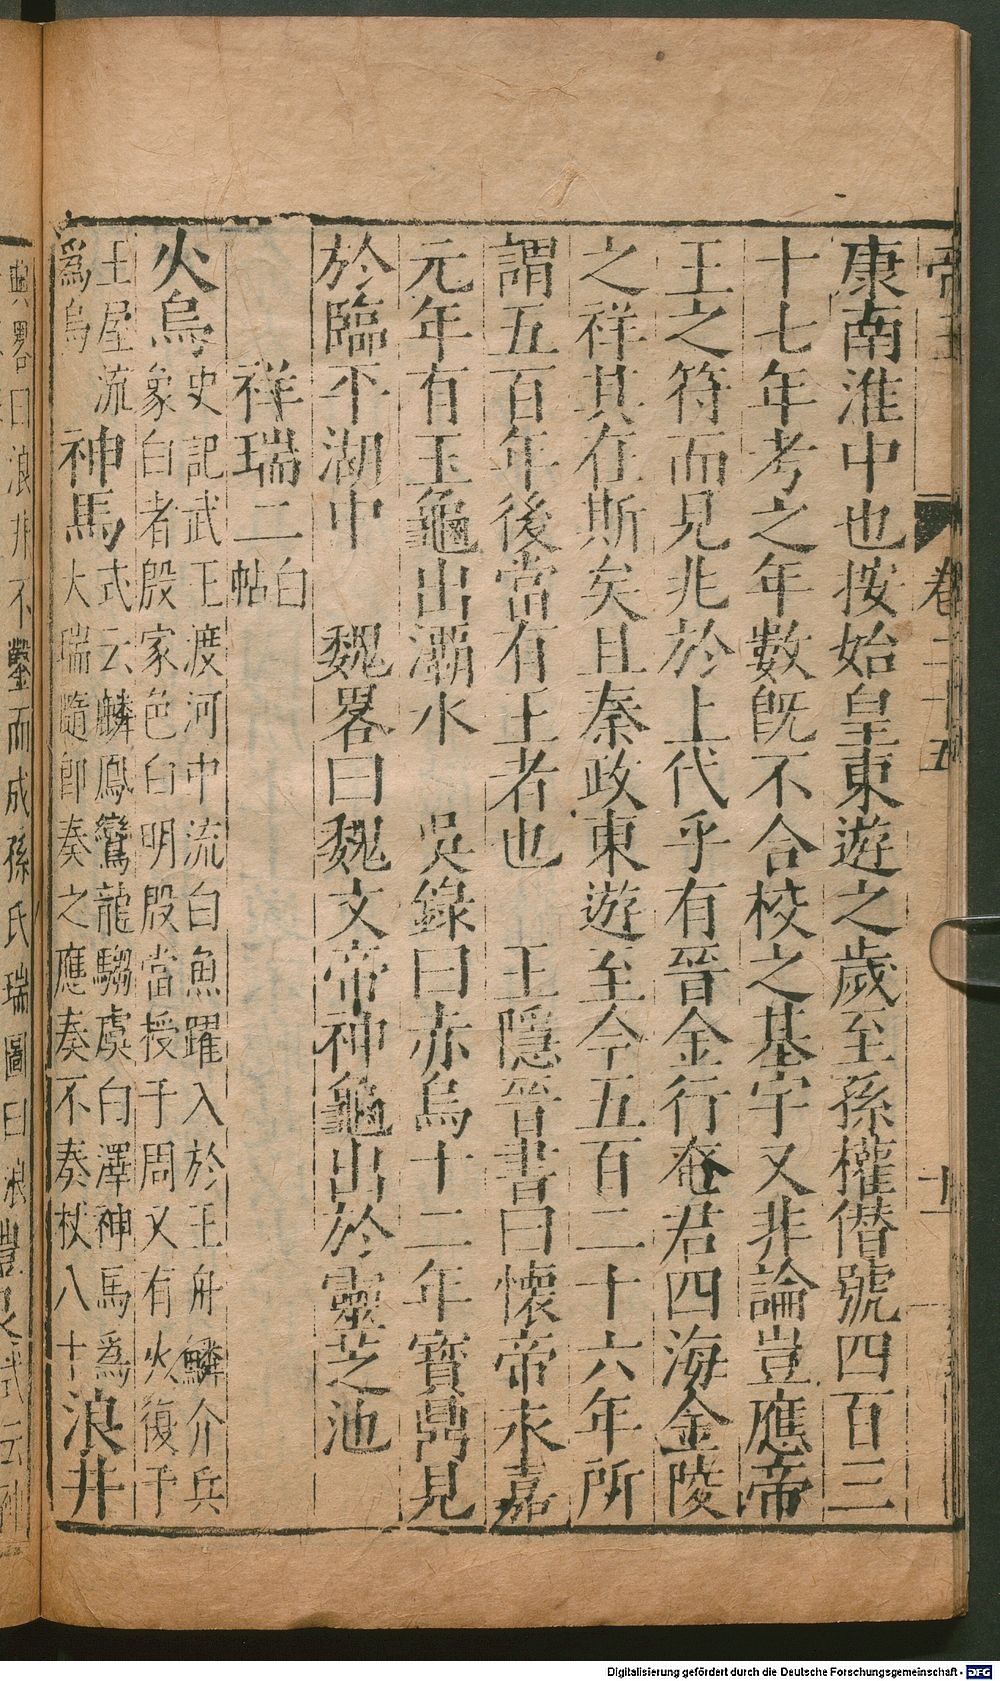 帝王 卷二十五 十一
康南淮中也按始皇東遊之歲至孫權僭號四百三
十七年考之年數旣不合校之基宇又非論豈應帝
王之符而見兆於上代乎有晉金行奄君四海金陵
之祥其在斯矣且秦政東遊至今五百二十六年所
謂五百年後當有王者也 王隱晉書曰懷帝永嘉
元年有玉龜出灞水 吳錄曰赤烏十二年寶鼎見
於臨平湖中 魏畧曰魏文帝神龜出於靈芝池
祥瑞二白帖
火烏史記武王渡河中流白魚躍入於王舟鱗介兵
象白者殷家色白明殷當授于周又有火復于
王屋流
爲烏
神馬式云麟鳳鸞龍騶虞白澤神馬爲
大瑞隨卽奏之應奏不奏杖八十
浪井
典畧曰浪井不鑿而成孫氏瑞圖曰浪
醴泉式云
Digitalisierung gefördert durch die Deutsche Forschungsgemeinschaft - DFG